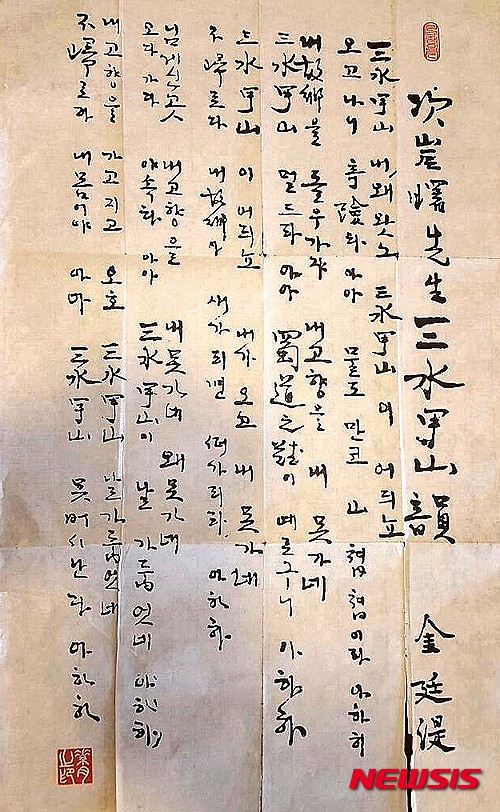 次岸曙先生三水甲山韻
金廷湜
三水甲山 내 왜 왓노 三水甲山이 어듸뇨
오고나니 奇險타 아아 물도 만코 山 첩첩이라 아하하
내 故鄕을 돌우가쟈 내 고향을 내 못가네
三水甲山 멀드라 아아 蜀道之難이 예로구나 아하하
三水甲山이 어듸뇨 내가 오고 내 못가네
不歸로다 내 故鄕아 새가 되면 떠가리라 아하하
님 계신 곳 내 고향을 내 못가네 왜 못가네
오다가다 야속타 아아 三水甲山이 날 가둡엇네 아하하
내 고향을 가고지고 오호 三水甲山 날 가둡엇네
不歸로다 내 몸이야 아아 三水甲山 못 버서난다 아하하
NEWSIS